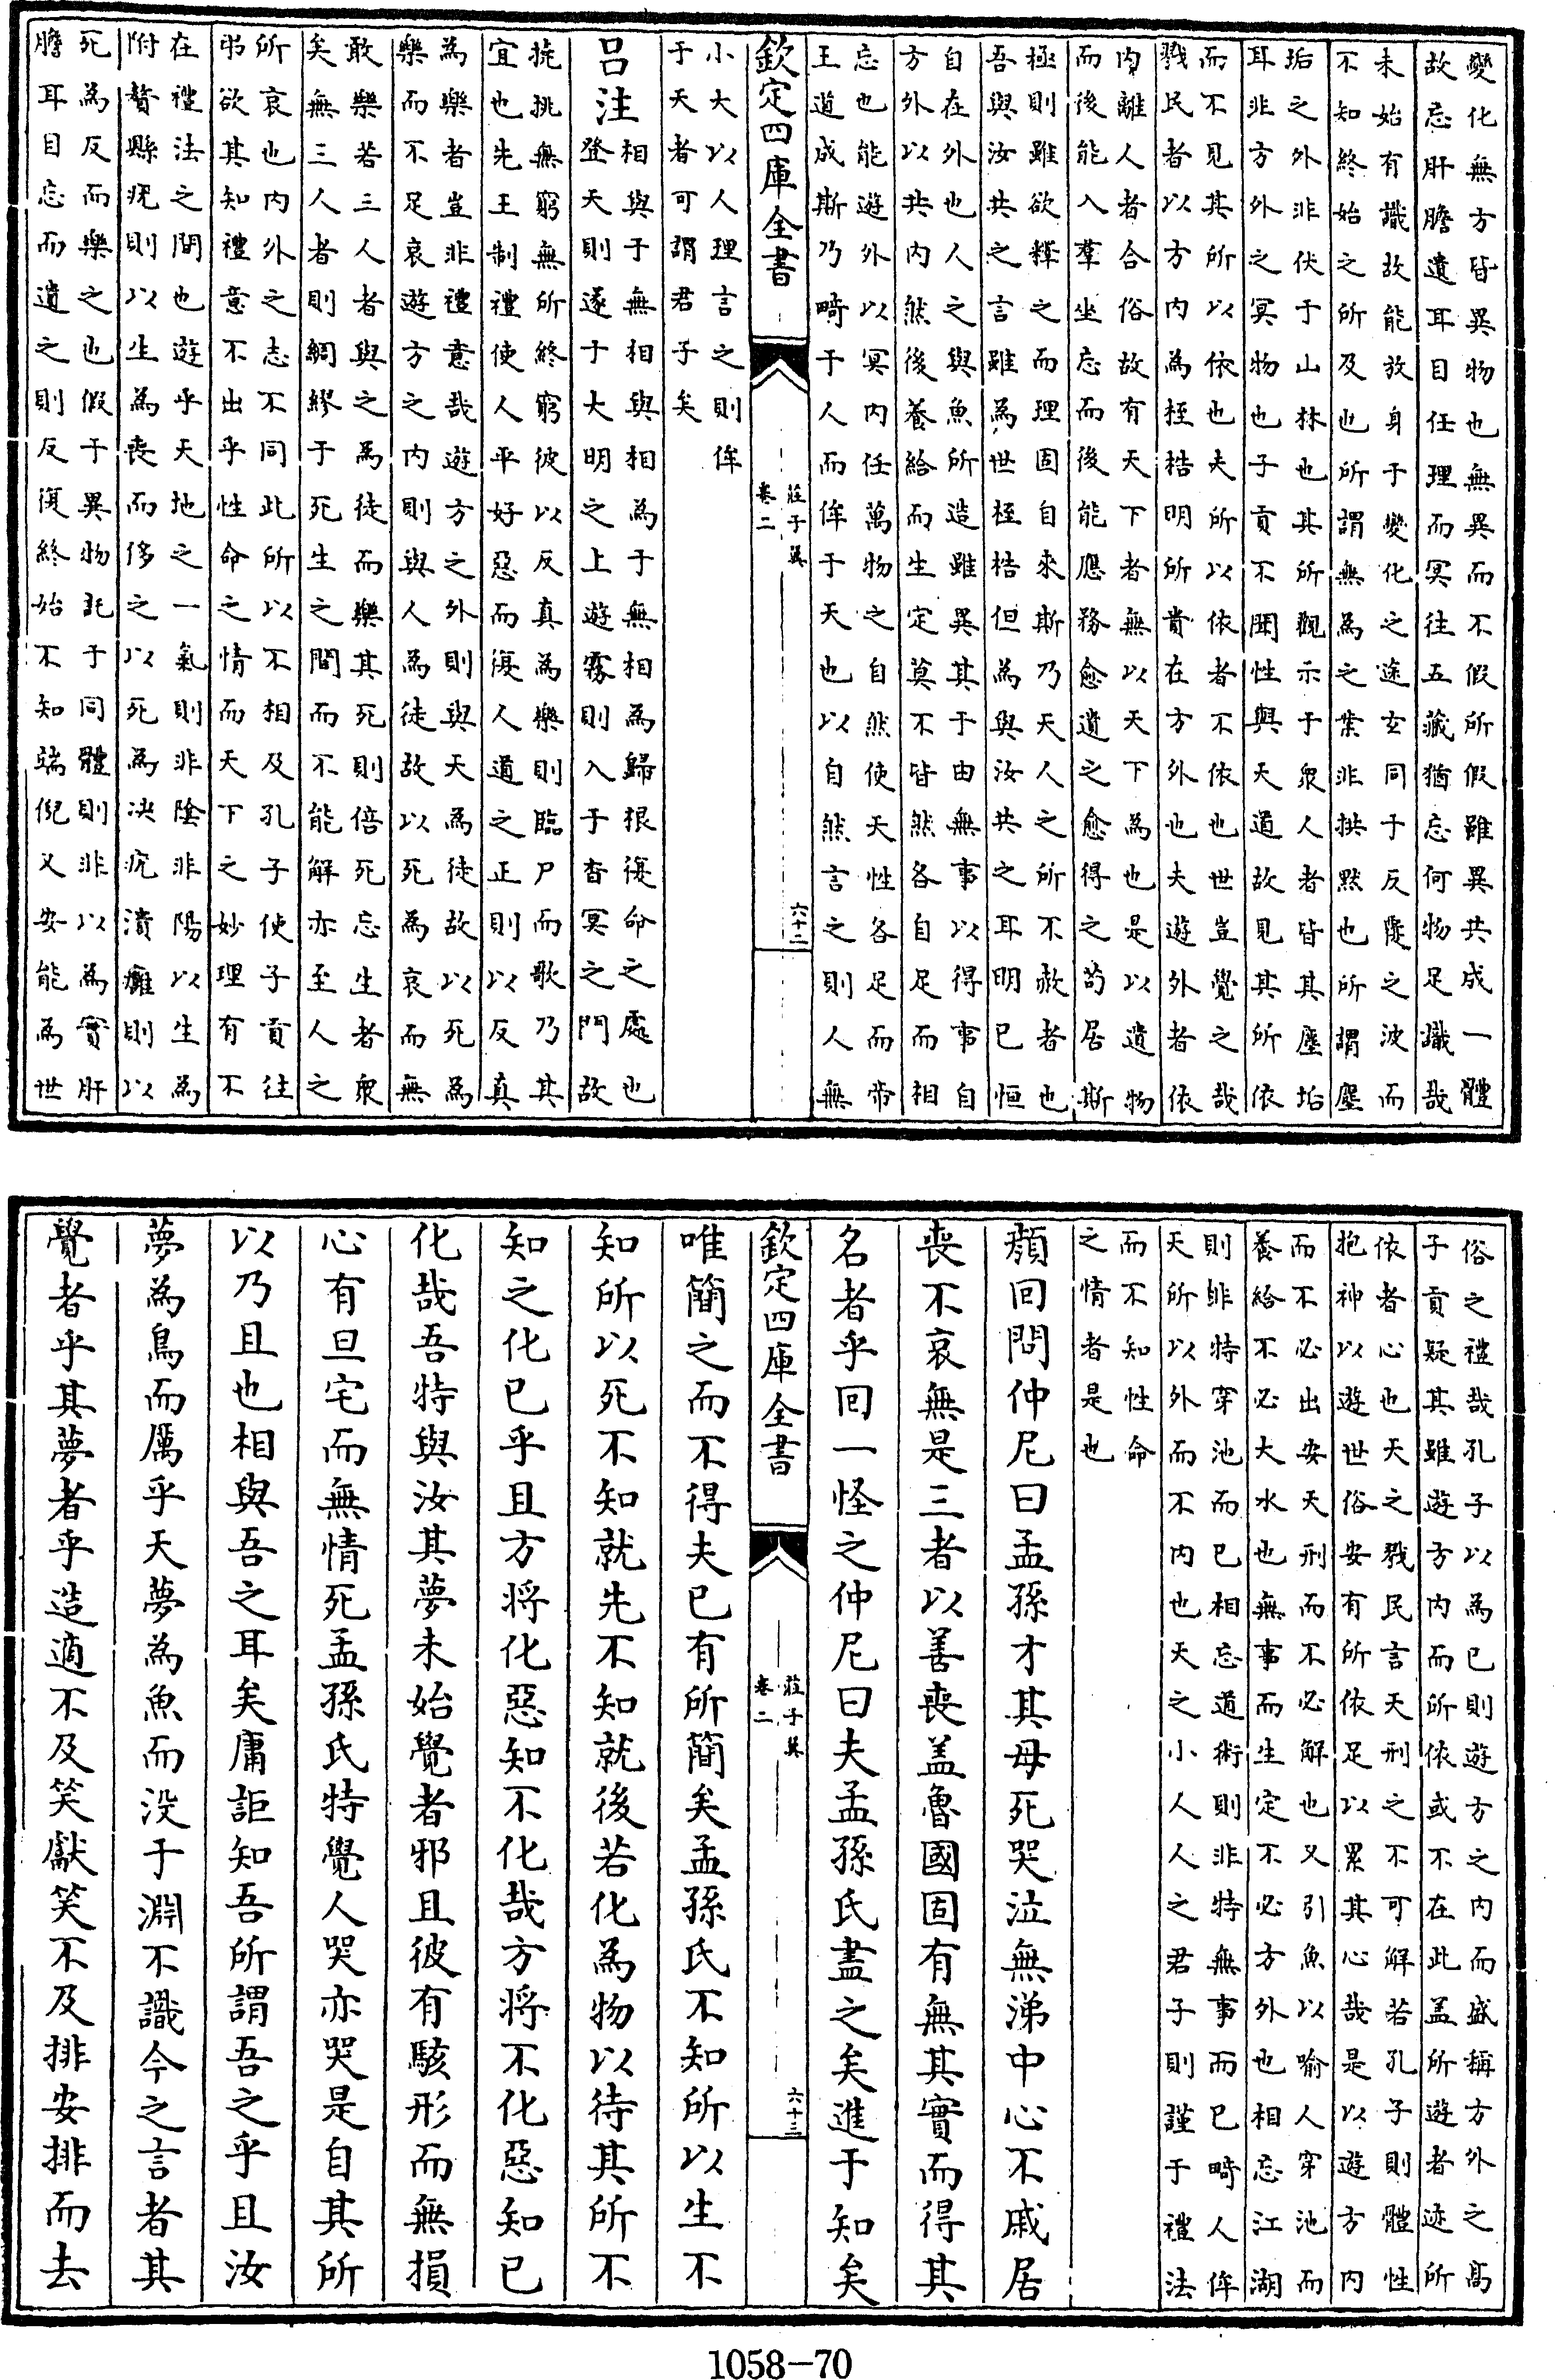 變化無方皆異物也無異而不假所假雖異共成一體
故忘肝膽遺耳目任理而冥往五藏猶忘何物足識哉
未始有識故能放身于變化之途玄同于反覆之波而
不知終始之所及也所謂無為之業非拱黙也所謂塵
垢之外非伏于山林也其所觀示于衆人者皆其塵垢
耳非方外之冥物也子貢不聞性與天道故見其所依
而不見其所以依也夫所以依者不依也世豈覺之哉
戮民者以方内為桎梏明所貴在方外也夫遊外者依
内離人者合俗故有天下者無以天下為也是以遺物
而後能入羣坐忘而後能應務愈遺之愈得之茍居斯
極則雖欲釋之而理固自來斯乃天人之所不赦者也
吾與汝共之言雖為世桎梏但為與汝共之耳明已恒
自在外也人之與魚所造雖異其于由無事以得事自
方外以共内然後養給而生定莫不皆然各自足而相
忘也能遊外以冥内任萬物之自然使天性各足而帝
王道成斯乃畸于人而侔于天也以自然言之則人無
欽定四庫全書
莊子翼
卷二
六十二
小大以人理言之則侔
于天者可謂君子矣
吕注
相與于無相與相為于無相為歸根復命之處也
登天則遂于大明之上遊霧則入于杳冥之門故
撓挑無窮無所終窮彼以反真為樂則臨尸而歌乃其
宜也先王制禮使人平好惡而復人道之正則以反真
為樂者豈非禮意哉遊方之外則與天為徒故以死為
樂而不足哀遊方之内則與人為徒故以死為哀而無
敢樂若三人者與之為徒而樂其死則倍死忘生者衆
矣無三人者則綢繆于死生之間而不能解亦至人之
所哀也内外之志不同此所以不相及孔子使子貢往
弔欲其知禮意不出乎性命之情而天下之妙理有不
在禮法之間也遊乎天地之一氣則非陰非陽以生為
附贅縣疣則以生為喪而侈之以死為决疣潰癰則以
死為反而樂之也假于異物託于同體則非以為實肝
膽耳目忘而遺之則反復終始不知端倪又安能為世
俗之禮哉孔子以為已則遊方之内而盛稱方外之高
子貢疑其雖遊方内而所依或不在此盖所遊者迹所
依者心也天之戮民言天刑之不可解若孔子則體性
抱神以遊世俗安有所依足以累其心哉是以遊方内
而不必出安天刑而不必解也又引魚以喻人穿池而
養給不必大水也無事而生定不必方外也相忘江湖
則非特穿池而已相忘道術則非特無事而已畸人侔
天所以外而不内也天之小人人之君子則謹于禮法
而不知性命
之情者是也
顔回問仲尼曰孟孫才其母死哭泣無涕中心不戚居
喪不哀無是三者以善喪盖魯國固有無其實而得其
名者乎回一怪之仲尼曰夫孟孫氏盡之矣進于知矣
欽定四庫全書
莊子翼
卷二
六十三
唯簡之而不得夫已有所簡矣孟孫氏不知所以生不
知所以死不知就先不知就後若化為物以待其所不
知之化已乎且方將化惡知不化哉方將不化惡知已
化哉吾特與汝其夢未始覺者邪且彼有駭形而無損
心有旦宅而無情死孟孫氏特覺人哭亦哭是自其所
以乃且也相與吾之耳矣庸詎知吾所謂吾之乎且汝
夢為鳥而厲乎天夢為魚而没于淵不識今之言者其
覺者乎其夢者乎造適不及笑獻笑不及排安排而去
1058-70